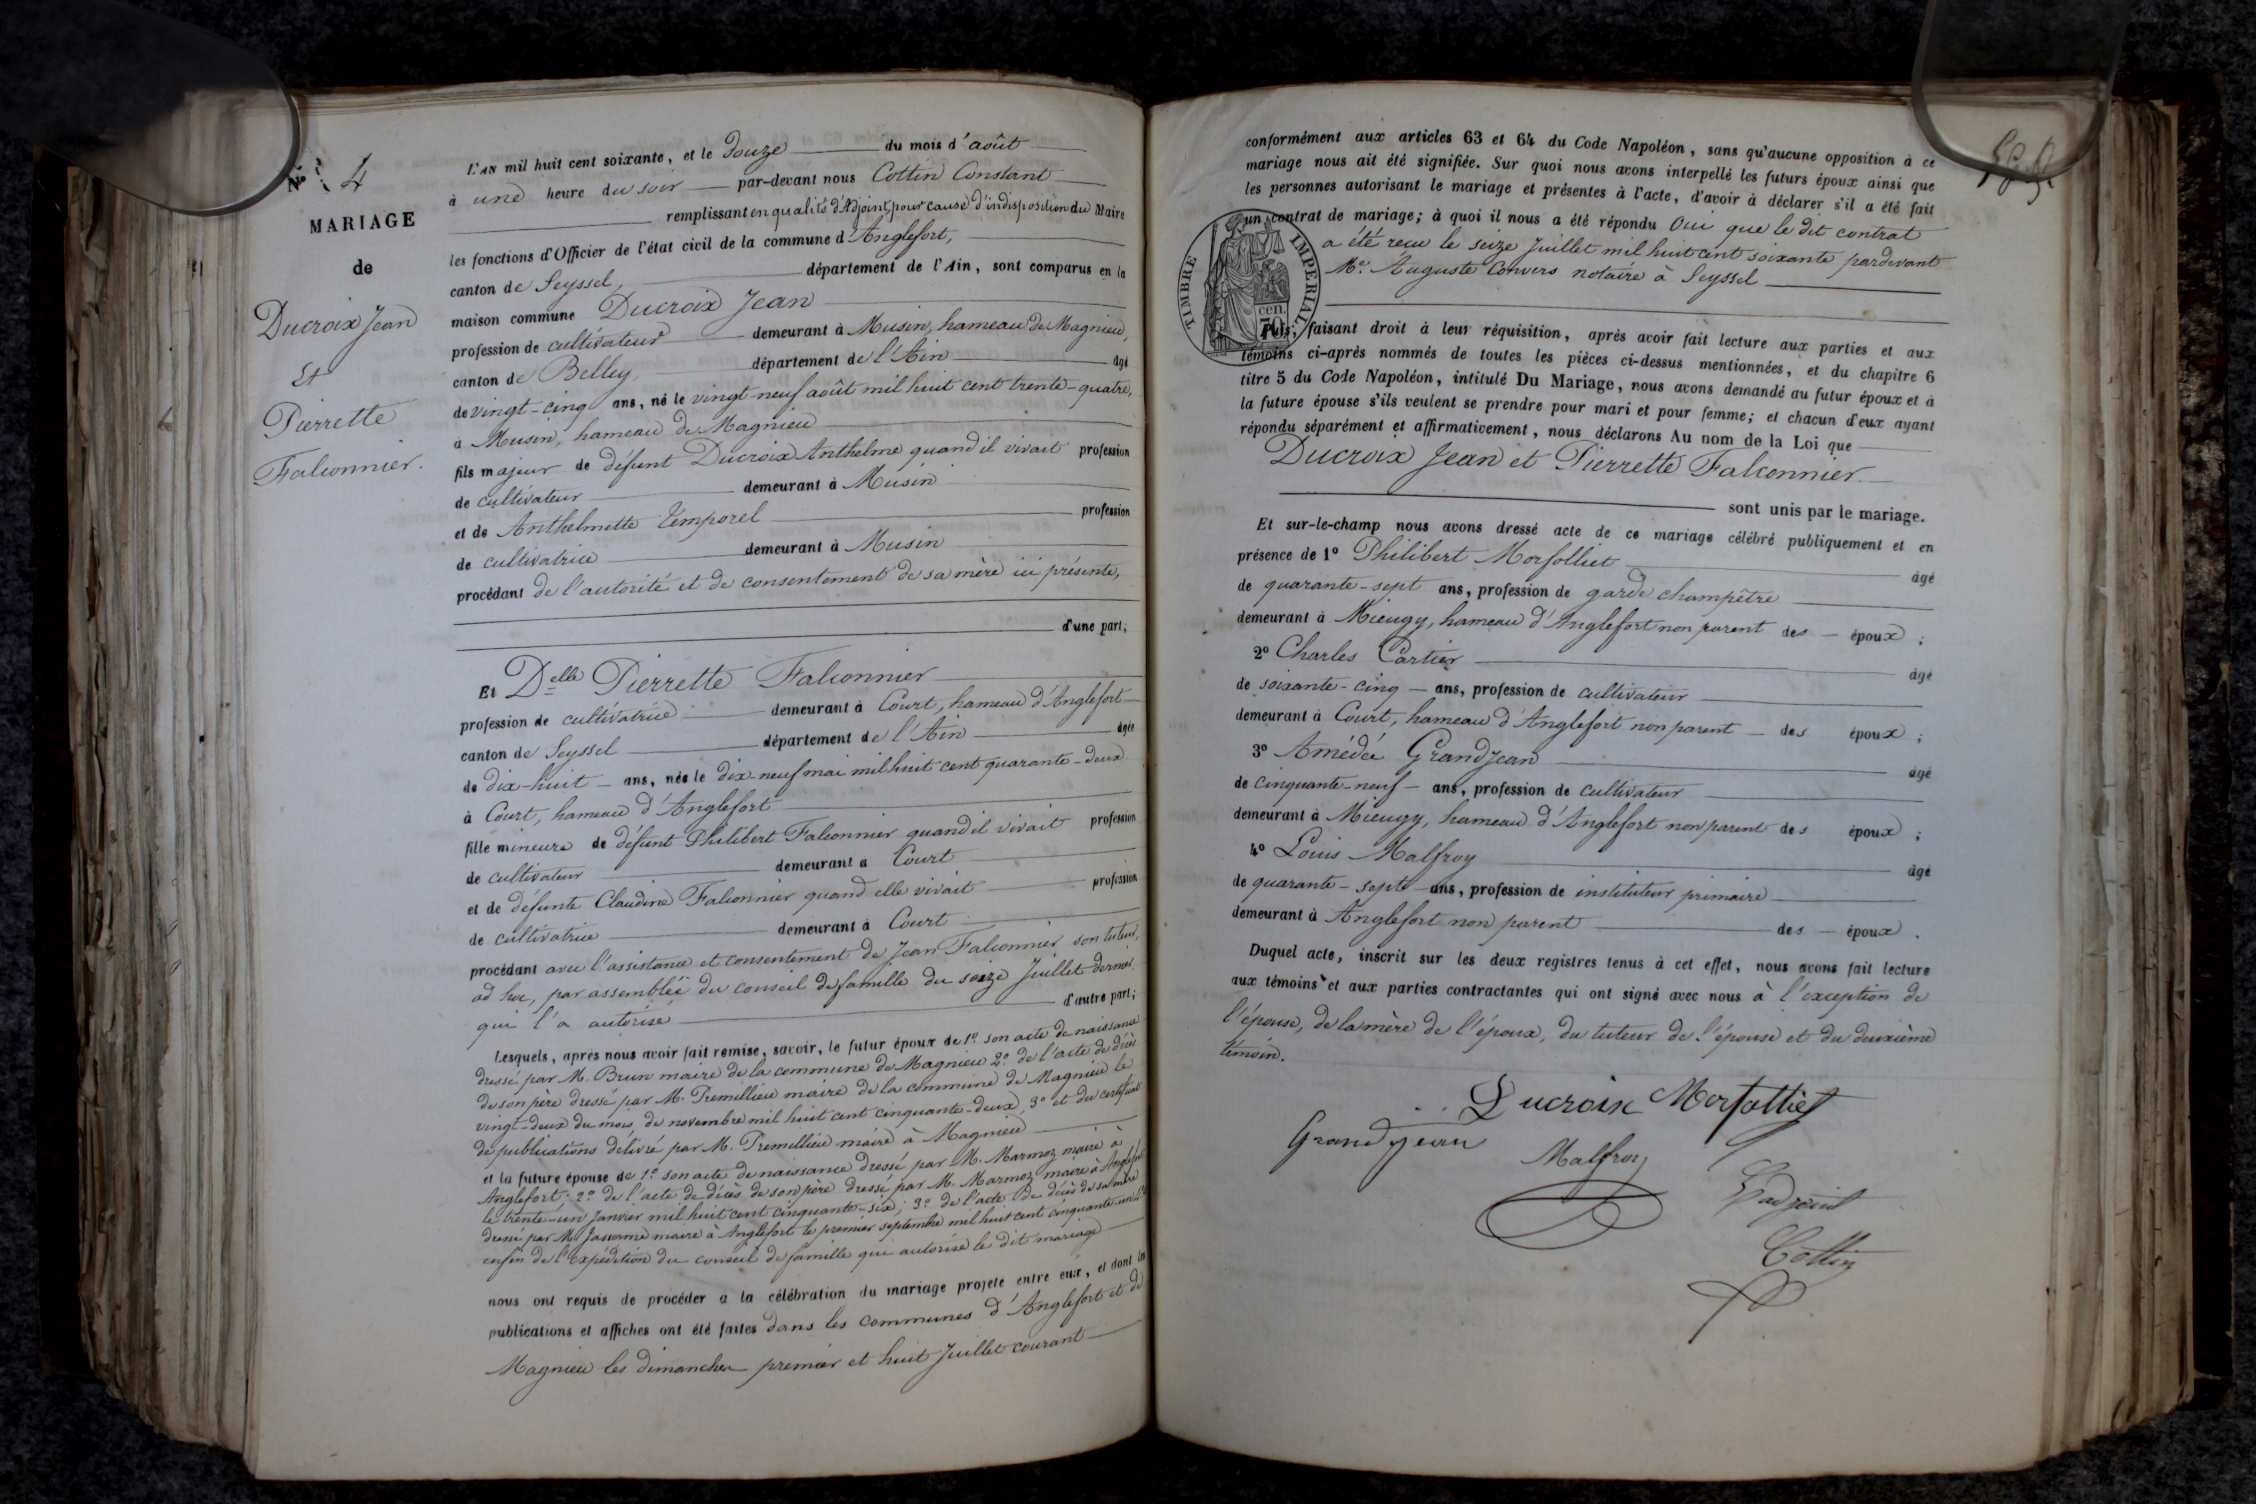 Nº 4
MARIAGE
de
Ducroix Jean
Et
Pierrette
Falconnier.
L'AN mil huit cent soixante, et le Douze du mois d'août
à une heure du soir par-devant nous Cottin Constant
remplissant en qualité d'Adjoint, pour cause d'indisposition du Maire
les fonctions d'Officier de l'état civil de la commune d'Anglefort,
canton de Seyssel, département de l'Ain, sont comparus en la
maison commune Ducroix Jean
profession de cultivateur demeurant à Musin, hameau de Magnieu,
canton de Belley, département de l'Ain âgé
de vingt-cinq ans, né le vingt-neuf août mil huit cent trente-quatre,
à Musin, hameau de Magnieu
fils majeur de défunt Ducroix Anthelme quand il vivait profession
de cultivateur demeurant à Musin
et de Anthelmette Temporel profession
de cultivatrice demeurant à Musin
procédant de l'autorité et de consentement de sa mère ici présente,
d'une part;
Et Delle Pierrette Falconnier
profession de cultivatrice demeurant à Court, hameau d'Anglefort
canton de Seyssel département de l'Ain âgée
de dix-huit ans, née le dix-neuf mai mil huit cent quarante-deux
à Court, hameau d'Anglefort
fille mineure de défunt Philibert Falconnier quand il vivait profession
de cultivateur demeurant à Court
et de défunte Claudine Falconnier quand elle vivait profession
de cultivatrice demeurant à Court
procédant avec l'assistance et consentement de Jean Falconnier son tuteur,
ad hoc, par assemblée du conseil de famille du seize Juillet dernier
qui l'a autorisé d'autre part;
Lesquels, après nous avoir fait remise, savoir, le futur époux de 1º son acte de naissance
dressé par M. Brun maire de la commune de Magnieu 2º de l'acte de décès
de son père dressé par M. Premillieu maire de la commune de Magnieu le
vingt-deux du mois de novembre mil huit cent cinquante-deux, 3º et du certificat
de publications délivré par M. Premillieu maire à Magnieu
et la future épouse de 1º son acte de naissance dressé par M. Marmoz maire à
Anglefort; 2º de l'acte de décès de son père dressé par M. Marmoz maire à Anglefort
le trente-un Janvier mil huit cent cinquante-six; 3º de l'acte de décès de sa mère
dressé par M. maire à Anglefort le premier septembre mil huit cent cinquante-un
enfin de l'expédition du conseil de famille qui autorise le dit mariage
nous ont requis de procéder à la célébration du mariage projeté entre eux, et dont les
publications et affiches ont été faites dans les communes d'Anglefort et de
Magnieu les dimanches premier et huit Juillet courant
conformément aux articles 63 et 64 du Code Napoléon, sans qu'aucune opposition à ce
mariage nous ait été signifiée. Sur quoi nous avons interpellé les futurs époux ainsi que
les personnes autorisant le mariage et présentes à l'acte, d'avoir à déclarer s'il a été fait
un contrat de mariage; à quoi il nous a été répondu Oui que le dit contrat
a été reçu le seize Juillet mil huit cent soixante pardevant
Me. Auguste Convers notaire à Seyssel
TIMBRE IMPERIAL
cen.
Puis, faisant droit à leur réquisition, après avoir fait lecture aux parties et aux
témoins ci-après nommés de toutes les pièces ci-dessus mentionnées, et du chapitre 6
titre 5 du Code Napoléon, intitulé Du Mariage, nous avons demandé au futur époux et à
la future épouse s'ils veulent se prendre pour mari et pour femme; et chacun d'eux ayant
répondu séparément et affirmativement, nous déclarons Au nom de la Loi que
Ducroix Jean et Pierrette Falconnier
sont unis par le mariage.
Et sur-le-champ nous avons dressé acte de ce mariage célébré publiquement et en
présence de 1º Philibert Morfolliet âgé
de quarante-sept ans, profession de garde champêtre
demeurant à Mieugy, hameau d'Anglefort non parent des époux;
2º Charles Cartier âgé
de soixante-cinq ans, profession de cultivateur
demeurant à Court, hameau d'Anglefort non parent des époux;
3º Amédée Grandjean âgé
de cinquante-neuf ans, profession de cultivateur
demeurant à Mieugy, hameau d'Anglefort non parent des époux;
4º Louis Malfroy âgé
de quarante-sept ans, profession de instituteur primaire
demeurant à Anglefort non parent des époux.
Duquel acte, inscrit sur les deux registres tenus à cet effet, nous avons fait lecture
aux témoins et aux parties contractantes qui ont signé avec nous à l'exception de
l'épouse, de la mère de l'époux, du tuteur de l'épouse et du deuxième
témoin.
Ducroix Morfolliet
Grandjean
Malfroy
L'adjoint
Cottin